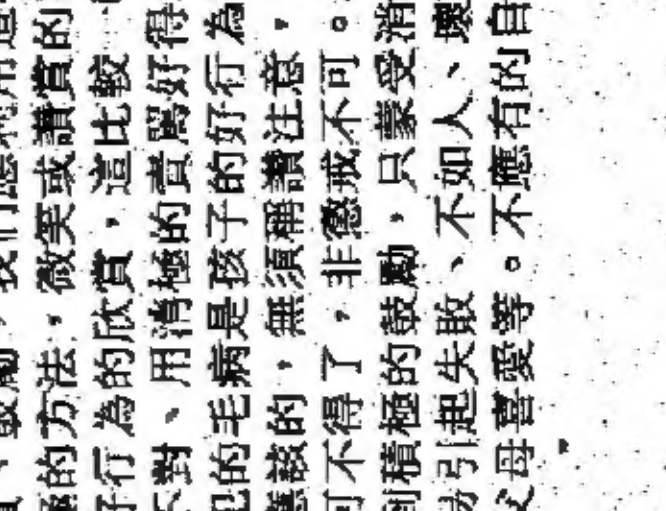 、鼓勵，我們應利用這
極的方法，微笑或讚賞的
好行為的欣賞，這比較
不對、用消極的責罵好得
犯的毛病是孩子的好行為
應該的，無須稱讚注意，
可不得了，非懲戒不可。
到積極的鼓勵，只蒙受消
易引起失敗、不如人、壞
父母喜愛等。不應有的自